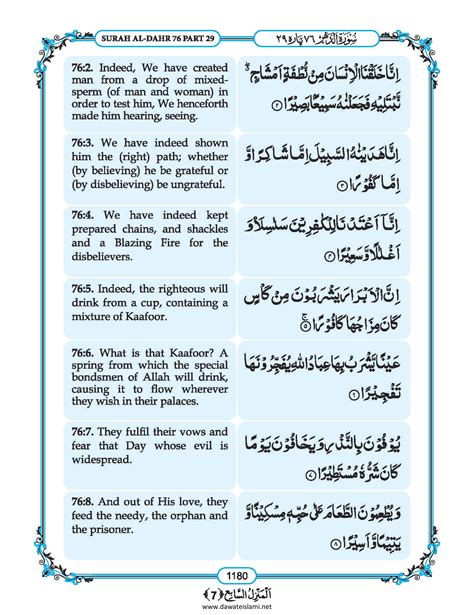 SURAH AL-DAHR 76 PART 29
سُوْرَةُ الدَّهْرِ ٧٦ پارہ ٢٩
76:2. Indeed, We have created
man from a drop of mixed-
sperm (of man and woman) in
order to test him, We henceforth
made him hearing, seeing.
اِنَّا خَلَقْنَا الْاِنْسَانَ مِنْ نُّطْفَةٍ اَمْشَاجٍ ۖۗ
نَّبْتَلِيْهِ فَجَعَلْنٰهُ سَمِيْعًۢا بَصِيْرًا ﴿٢﴾
76:3. We have indeed shown
him the (right) path; whether
(by believing) he be grateful or
(by disbelieving) be ungrateful.
اِنَّا هَدَيْنٰهُ السَّبِيْلَ اِمَّا شَاكِرًا وَّ
اِمَّا كَفُوْرًا ﴿٣﴾
76:4. We have indeed kept
prepared chains, and shackles
and a Blazing Fire for the
disbelievers.
اِنَّاۤ اَعْتَدْنَا لِلْكٰفِرِيْنَ سَلٰسِلَا۟ وَ
اَغْلٰلًا وَّ سَعِيْرًا ﴿٤﴾
76:5. Indeed, the righteous will
drink from a cup, containing a
mixture of Kaafoor.
اِنَّ الْاَبْرَارَ يَشْرَبُوْنَ مِنْ كَاْسٍ
كَانَ مِزَاجُهَا كَافُوْرًا ﴿٥﴾
76:6. What is that Kaafoor? A
spring from which the special
bondsmen of Allah will drink,
causing it to flow wherever
they wish in their palaces.
عَيْنًا يَّشْرَبُ بِهَا عِبَادُ اللهِ يُفَجِّرُوْنَهَا
تَفْجِيْرًا ﴿٦﴾
76:7. They fulfil their vows and
fear that Day whose evil is
widespread.
يُوْفُوْنَ بِالنَّذْرِ وَ يَخَافُوْنَ يَوْمًا
كَانَ شَرُّهٗ مُسْتَطِيْرًا ﴿٧﴾
76:8. And out of His love, they
feed the needy, the orphan and
the prisoner.
وَ يُطْعِمُوْنَ الطَّعَامَ عَلٰى حُبِّهٖ مِسْكِيْنًا وَّ
يَتِيْمًا وَّ اَسِيْرًا ﴿٨﴾
1180
اَلْمَنْزِلُ السَّابِعُ ﴿7﴾
www.dawateislami.net